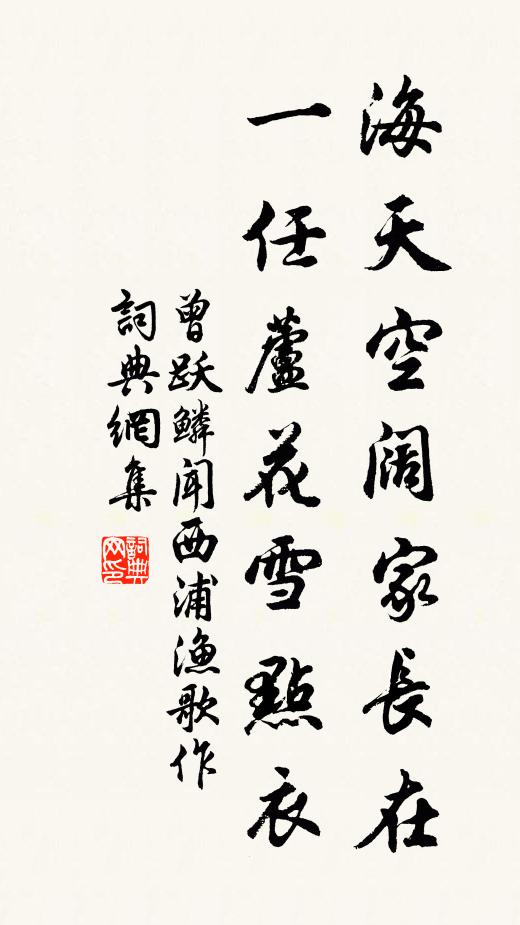 海天空阔家長在
一任蘆花雪點衣
曾跃鳞闻西浦渔歌作
詞典網集
詞典
网印